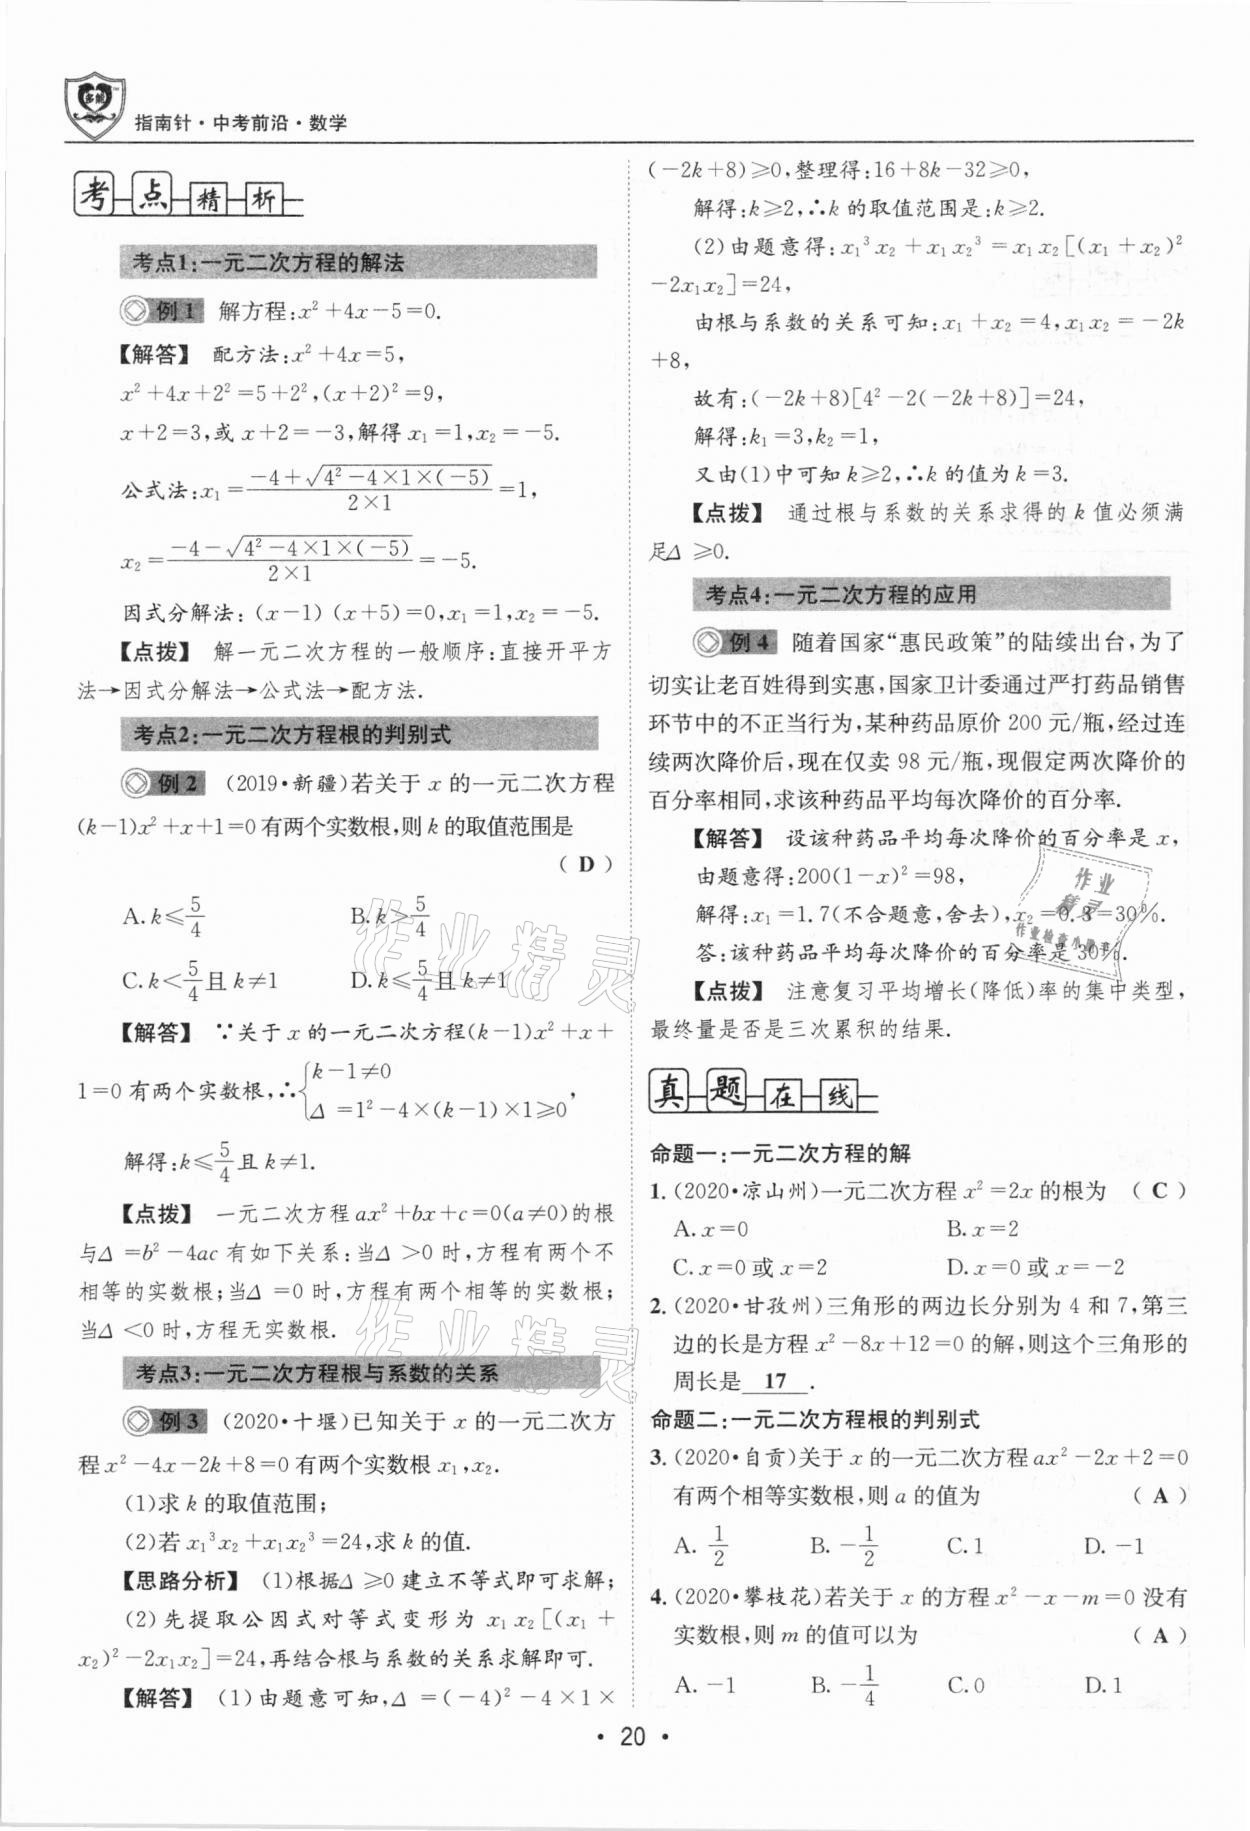 多能
指南针·中考前沿·数学
考点精析
考点1:一元二次方程的解法
例1 解方程:x²+4x-5=0.
【解答】 配方法:x²+4x=5,
x²+4x+2²=5+2²,(x+2)²=9,
x+2=3,或 x+2=-3,解得 x₁=1,x₂=-5.
公式法:x₁=(-4+√(4²-4×1×(-5)))/(2×1)=1,
x₂=(-4-√(4²-4×1×(-5)))/(2×1)=-5.
因式分解法: (x-1) (x+5)=0,x₁=1,x₂=-5.
【点拨】 解一元二次方程的一般顺序:直接开平方
法→因式分解法→公式法→配方法.
考点2:一元二次方程根的判别式
例2 (2019·新疆)若关于 x 的一元二次方程
(k-1)x²+x+1=0有两个实数根,则 k 的取值范围是
( D )
A.k≤5/4 B.k>5/4
C.k<5/4且 k≠1 D.k≤5/4且 k≠1
【解答】 ∵关于 x 的一元二次方程(k-1)x²+x+
1=0有两个实数根,∴{k-1≠0
Δ=1²-4×(k-1)×1≥0,
解得:k≤5/4且 k≠1.
【点拨】 一元二次方程ax²+bx+c=0(a≠0)的根
与Δ=b²-4ac 有如下关系:当Δ>0 时,方程有两个不
相等的实数根;当Δ=0时,方程有两个相等的实数根;
当Δ<0时,方程无实数根.
考点3:一元二次方程根与系数的关系
例3 (2020·十堰)已知关于 x 的一元二次方
程x²-4x-2k+8=0有两个实数根 x₁,x₂.
(1)求 k 的取值范围;
(2)若 x₁³x₂+x₁x₂³=24,求 k 的值.
【思路分析】 (1)根据Δ≥0建立不等式即可求解;
(2)先提取公因式对等式变形为 x₁x₂[(x₁+
x₂)²-2x₁x₂]=24,再结合根与系数的关系求解即可.
【解答】 (1)由题意可知,Δ=(-4)²-4×1×
(-2k+8)≥0,整理得:16+8k-32≥0,
解得:k≥2,∴k 的取值范围是:k≥2.
(2)由题意得:x₁³x₂+x₁x₂³=x₁x₂[(x₁+x₂)²
-2x₁x₂]=24,
由根与系数的关系可知:x₁+x₂=4,x₁x₂=-2k
+8,
故有:(-2k+8)[4²-2(-2k+8)]=24,
解得:k₁=3,k₂=1,
又由(1)中可知 k≥2,∴k 的值为 k=3.
【点拨】 通过根与系数的关系求得的 k 值必须满
足Δ≥0.
考点4:一元二次方程的应用
例4 随着国家“惠民政策”的陆续出台,为了
切实让老百姓得到实惠,国家卫计委通过严打药品销售
环节中的不正当行为,某种药品原价 200 元/瓶,经过连
续两次降价后,现在仅卖 98 元/瓶,现假定两次降价的
百分率相同,求该种药品平均每次降价的百分率.
【解答】 设该种药品平均每次降价的百分率是 x,
由题意得:200(1-x)²=98,
解得:x₁=1.7(不合题意,舍去),x₂=0.3=30%.
答:该种药品平均每次降价的百分率是 30%.
【点拨】 注意复习平均增长(降低)率的集中类型,
最终量是否是三次累积的结果.
真题在线
命题一:一元二次方程的解
1.(2020·凉山州)一元二次方程 x²=2x 的根为 ( C )
A.x=0 B.x=2
C.x=0 或 x=2 D.x=0 或 x=-2
2.(2020·甘孜州)三角形的两边长分别为 4 和 7,第三
边的长是方程 x²-8x+12=0 的解,则这个三角形的
周长是 17 .
命题二:一元二次方程根的判别式
3.(2020·自贡)关于 x 的一元二次方程 ax²-2x+2=0
有两个相等实数根,则 a 的值为 ( A )
A. 1/2 B. -1/2 C.1 D.-1
4.(2020·攀枝花)若关于 x 的方程 x²-x-m=0 没有
实数根,则 m 的值可以为 ( A )
A.-1 B.-1/4 C.0 D.1
·20·
作业精灵
作业精灵
作业
精灵
作业检查小助手